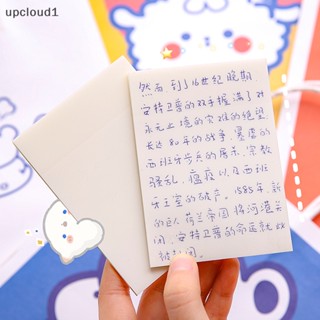 upcloud1
然而 到了16世纪晚期
安特卫普的双手握满了对
永无止境的灾难的绝望
长达和年的战争，寡居的
西班牙步兵的屠杀，宗教
骚乱，瘟疫以及西班
牙王室的破产。1585年，新
的巨人荷兰帝国将河道关
闭，安特卫普的命运就此
被